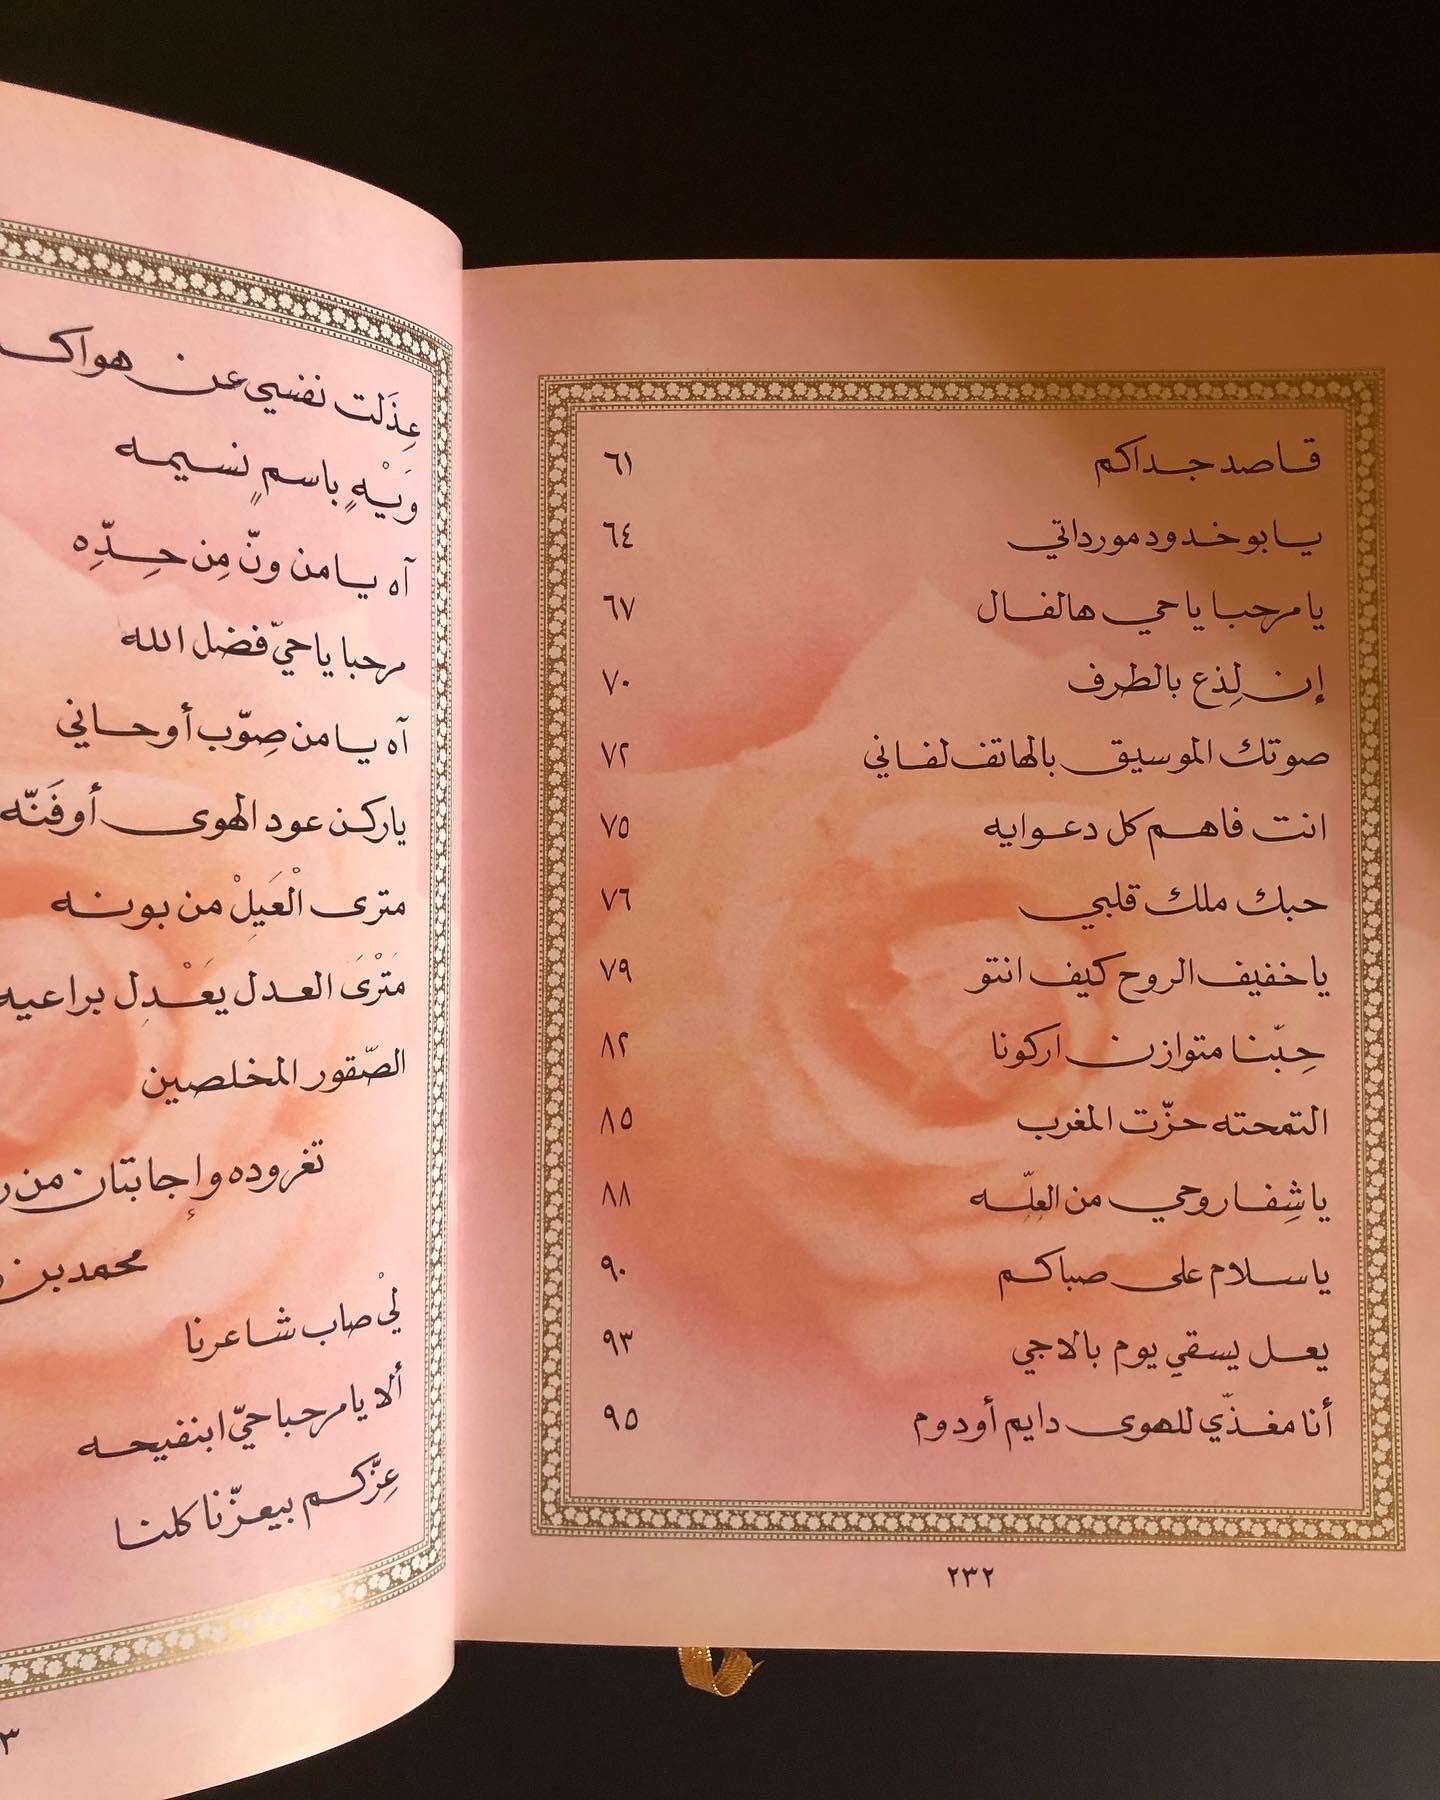 قاصد جداكم ٦١
يا بو خدود مورداتي ٦٤
يا مرحبا يا حي هالفال ٦٧
إن لِذع بالطرف ٧٠
صوتك الموسيق بالهاتف لفاني ٧٢
انت فاهم كل دعوايه ٧٥
حبك ملك قلبي ٧٦
يا خفيف الروح كيف انتو ٧٩
حِبّنا متوازن اركونا ٨٢
التمحته حزّت المغرب ٨٥
يا شِفا روحي من العِلِّه ٨٨
يا سلام على صباكم ٩٠
يعل يسقي يوم بالاجي ٩٣
أنا مغذّي للهوى دايم أودوم ٩٥
٢٣٢
عِذَلت نفسي عن هواك
وَيْهٍ باسمٍ نسيمه
آه يا من ونّ مِن حِدِّه
مرحبا يا حيّ فضل الله
آه يا من صِوّب أوحاني
يا ركن عود الهوى أوفَنّه
مترى الْعَيلْ من بونه
مَتْرَى العدل يَعْدِل براعيه
الصّقور المخلصين
تغروده وإجابتان من
محمد بن
لْي صاب شاعرنا
ألا يا مرحبا حيّ ابنفيحه
عِزّكم بيعزّنا كلنا
٣